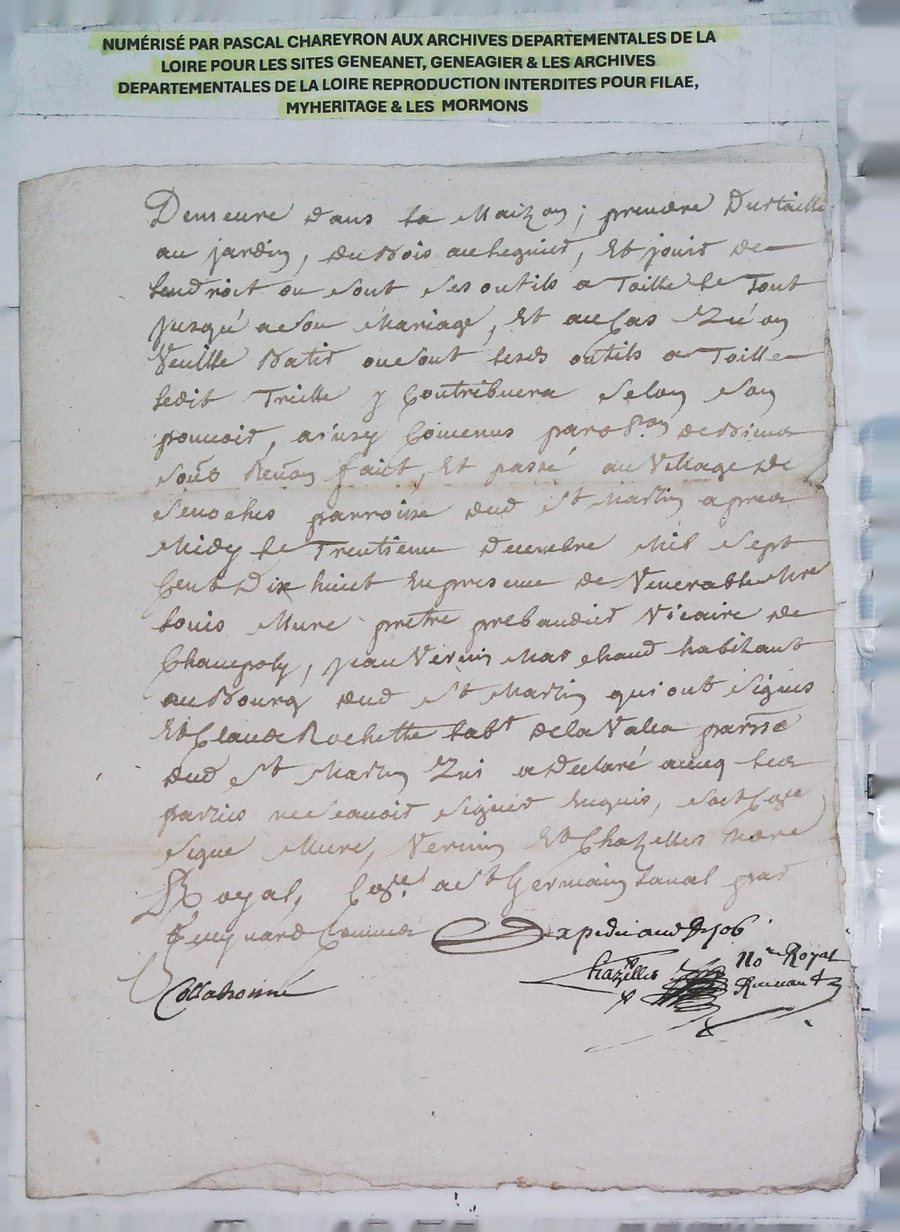 NUMÉRISÉ PAR PASCAL CHAREYRON AUX ARCHIVES DEPARTEMENTALES DE LA
LOIRE POUR LES SITES GENEANET, GENEAGIER & LES ARCHIVES
DEPARTEMENTALES DE LA LOIRE REPRODUCTION INTERDITES POUR FILAE,
MYHERITAGE & LES MORMONS
Demeure dans la Maizon; prendre
au jardin, du Bois au, Et jouir de
lendroit ou sont ses outils a Taille le Tout
jusqu'a son Mariage, Et au Cas qu'on
Veuille Batir ou sont lesds outils a Taille
ledit Treille y Contribuera selon son
pouvoir, ainsy Convenus
sous faict, Et passé au Village de
parroisse dud St Martin apres
Midy le Trentieme Decembre Mil sept
Cent Dix huict En presence de Venerable Mre
Louis Mure prêtre prebandier Vicaire de
Champoly, jean Vernin Marchand habitant
au Bourg dud St Martin qui ont signés
Et Claude Rochette labr de la Valla parrse
dud St Martin qui a declaré avecq les
parties ne scavoir signer Enquis, soit
signe Mure, Vernin Et Chazelles Nore
Royal, a St Germain Laval par
Commis Expedié aud
Collationné Chazelles Nore Royal